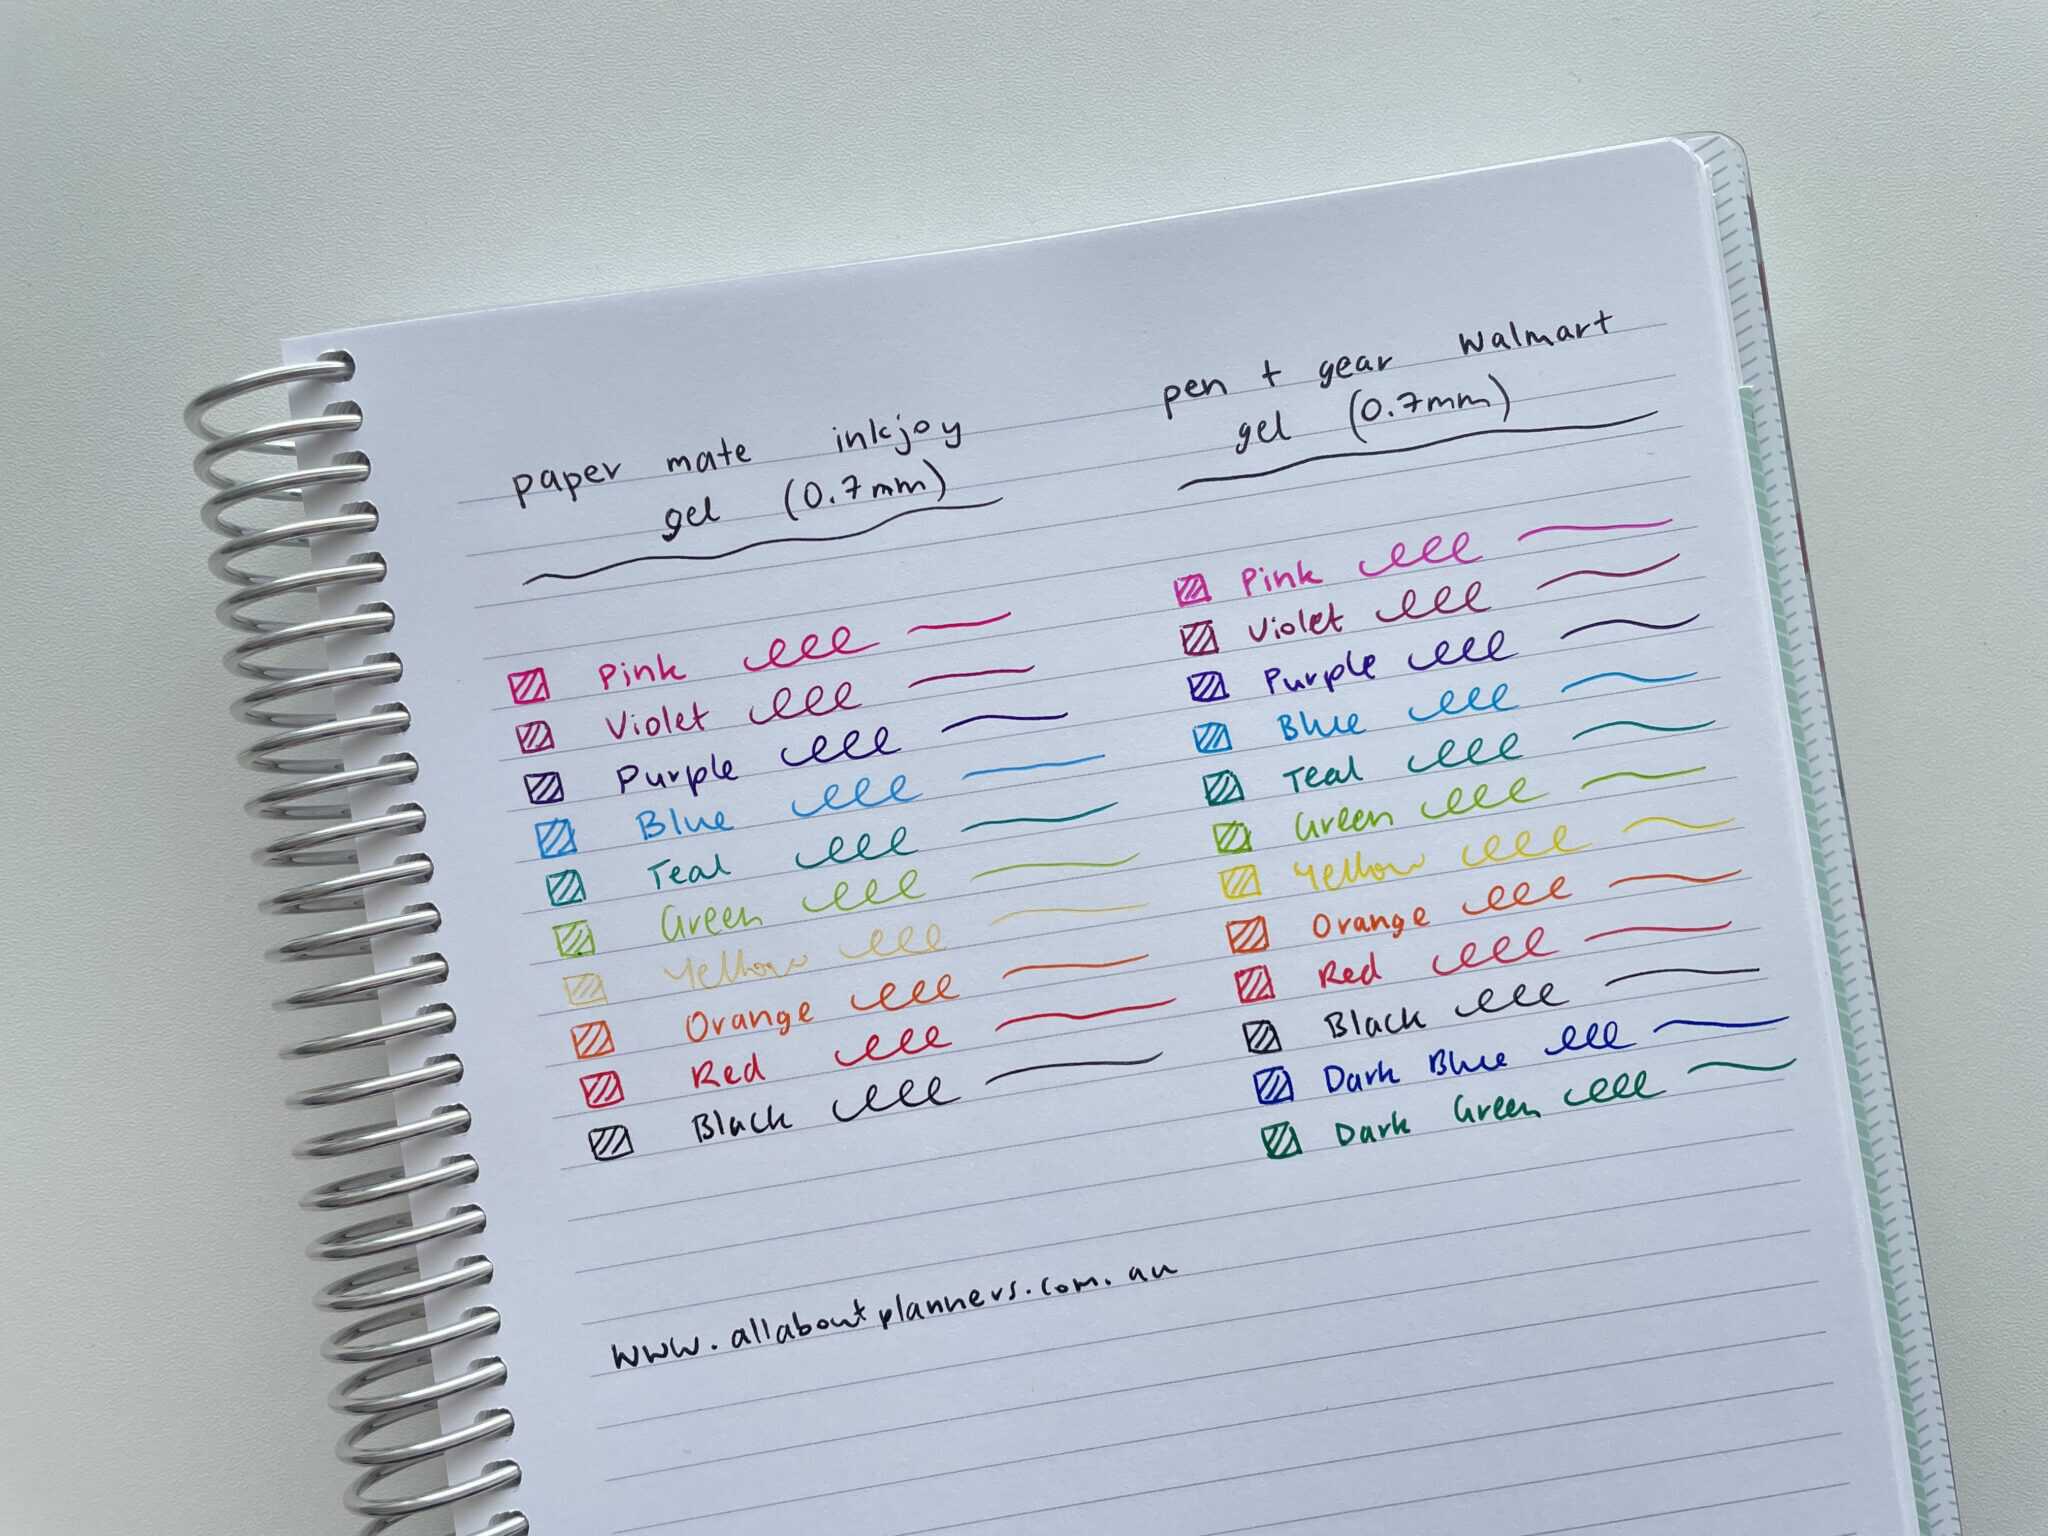 paper mate inkjoy
gel (0.7mm)
Pink
Violet
Purple
Blue
Teal
Green
Yellow
Orange
Red
Black
pen + gear Walmart
gel (0.7mm)
Pink
Violet
Purple
Blue
Teal
Green
Yellow
Orange
Red
Black
Dark Blue
Dark Green
www.allaboutplanners.com.au